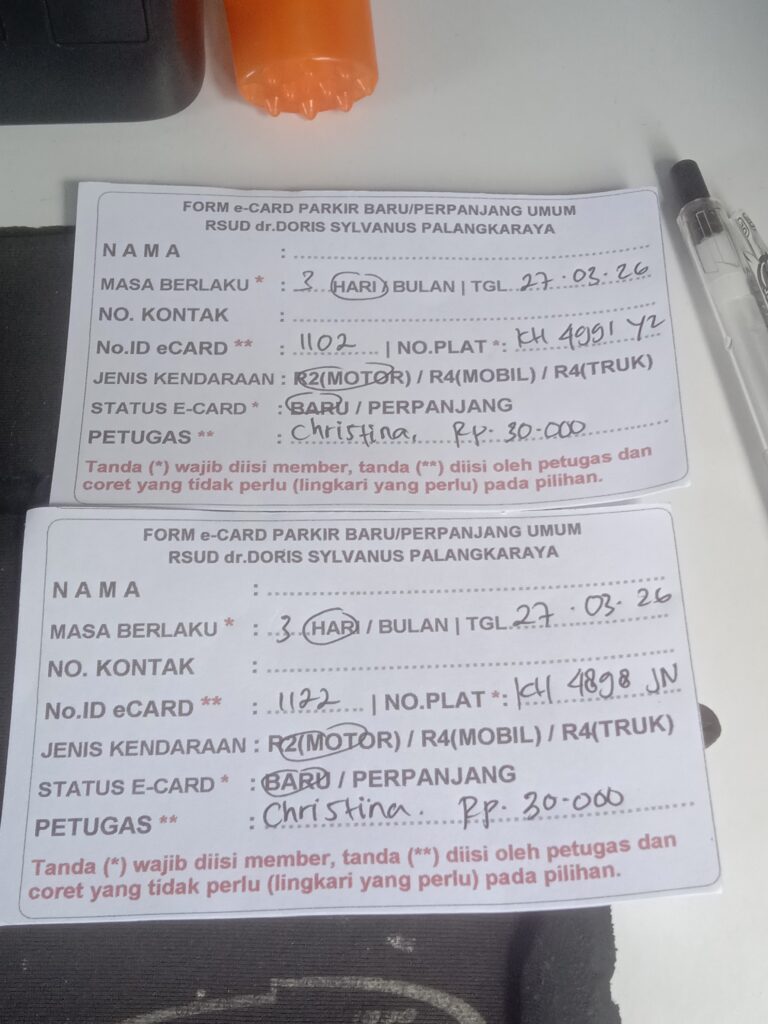 FORM e-CARD PARKIR BARU/PERPANJANG UMUM
RSUD dr.DORIS SYLVANUS PALANGKARAYA
N A M A :
MASA BERLAKU * : 3 HARI / BULAN | TGL 27.03.26
NO. KONTAK :
No.ID eCARD ** : 1102 | NO.PLAT *: KH 4991 YZ
JENIS KENDARAAN : R2(MOTOR) / R4(MOBIL) / R4(TRUK)
STATUS E-CARD * : BARU / PERPANJANG
PETUGAS ** : Christina, Rp. 30.000
Tanda (*) wajib diisi member, tanda (**) diisi oleh petugas dan
coret yang tidak perlu (lingkari yang perlu) pada pilihan.
FORM e-CARD PARKIR BARU/PERPANJANG UMUM
RSUD dr.DORIS SYLVANUS PALANGKARAYA
N A M A :
MASA BERLAKU * : 3 HARI / BULAN | TGL 27.03.26
NO. KONTAK :
No.ID eCARD ** : 1122 | NO.PLAT *: KH 4898 JN
JENIS KENDARAAN : R2(MOTOR) / R4(MOBIL) / R4(TRUK)
STATUS E-CARD * : BARU / PERPANJANG
PETUGAS ** : Christina. Rp. 30.000
Tanda (*) wajib diisi member, tanda (**) diisi oleh petugas dan
coret yang tidak perlu (lingkari yang perlu) pada pilihan.